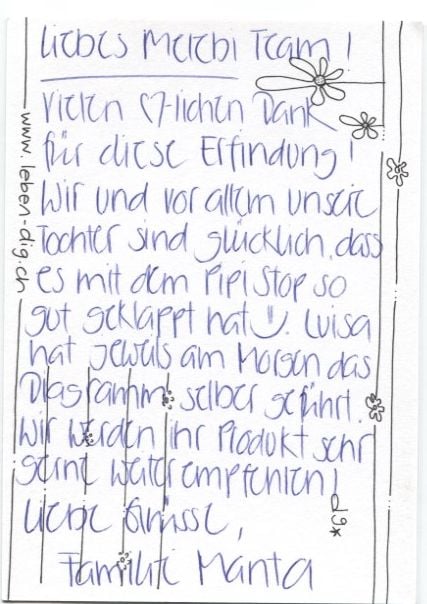 Liebes Merebi Team!
Vielen ♡-lichen Dank
für diese Erfindung!
Wir und vor allem unsere
Tochter sind glücklich, dass
es mit dem Pipi Stop so
gut geklappt hat☺. Luisa
hat jeweils am Morgen das
Diagramm selber geführt.
Wir werden ihr Produkt sehr
gerne weiterempfehlen!
Liebe Grüsse,
Familie Manta
www.leben-dig.ch